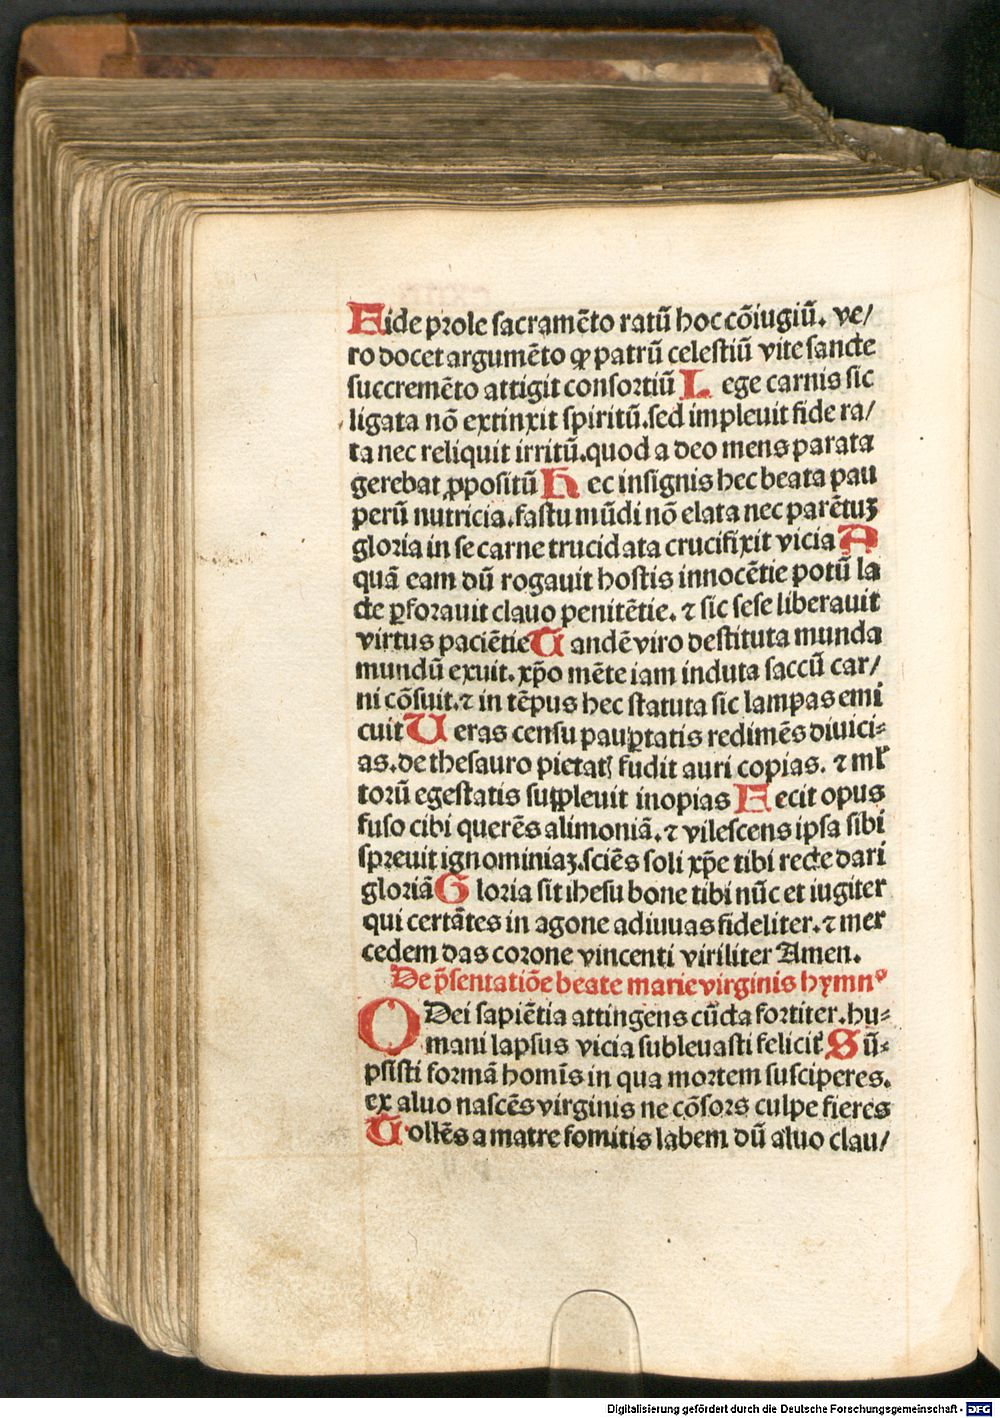 Fide prole sacramẽto ratũ hoc cõiugiũ. ve/
ro docet argumẽto ꝙ patrũ celestiũ vite sancte
succremẽto attigit consortiũ L ege carnis sic
ligata nõ extinxit spiritũ.sed impleuit fide ra/
ta nec reliquit irritũ.quod a deo mens parata
gerebat ꝓpositũ H ec insignis hec beata pau
perũ nutricia.fastu mũdi nõ elata nec parẽtuꝫ
gloria in se carne trucidata crucifixit vicia A
quã eam dũ rogauit hostis innocẽtie potũ la
cte ꝑforauit clauo penitẽtie. ⁊ sic sese liberauit
virtus paciẽtie T andẽ viro destituta munda
mundũ exuit. xp̃o mẽte iam induta saccũ car/
ni cõsuit.⁊ in tẽpus hec statuta sic lampas emi
cuit V eras censu pauꝑtatis redimẽs diuici-
as.de thesauro pietatꝭ fudit auri copias. ⁊ ml̾
torũ egestatis supꝑleuit inopias F ecit opus
fuso cibi querẽs alimoniã.⁊ vilescens ipsa sibi
spreuit ignominiaꝫ.sciẽs soli xp̃e tibi recte dari
gloriã G loria sit ihesu bone tibi nũc et iugiter
qui certãtes in agone adiuuas fideliter.⁊ mer
cedem das corone vincenti viriliter Amen.
De p̃sentatiõe beate marie virginis hymnꝰ
O Dei sapiẽtia attingens cũcta fortiter.hu-
mani lapsus vicia subleuasti felicit̾ S ũ-
psisti formã homĩs in qua mortem susciperes.
ex aluo nascẽs virginis ne cõsors culpe fieres
T ollẽs a matre fomitis labem dũ aluo clau/
Digitalisierung gefördert durch die Deutsche Forschungsgemeinschaft - DFG